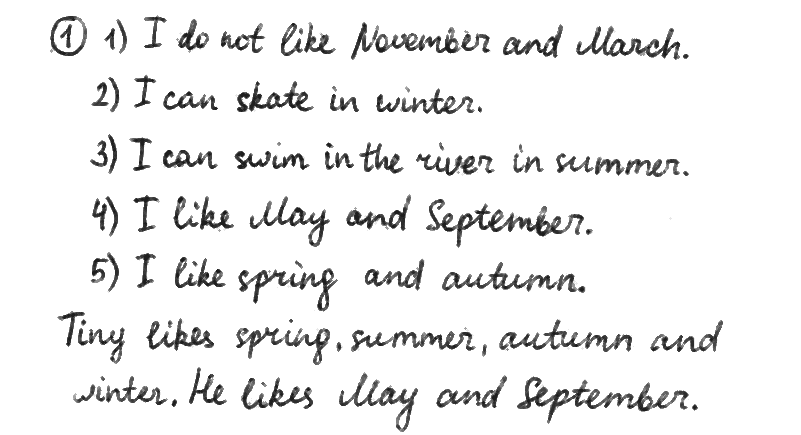 ① 1) I do not like November and March.
2) I can skate in winter.
3) I can swim in the river in summer.
4) I like May and September.
5) I like spring and autumn.
Tiny likes spring, summer, autumn and
winter. He likes May and September.